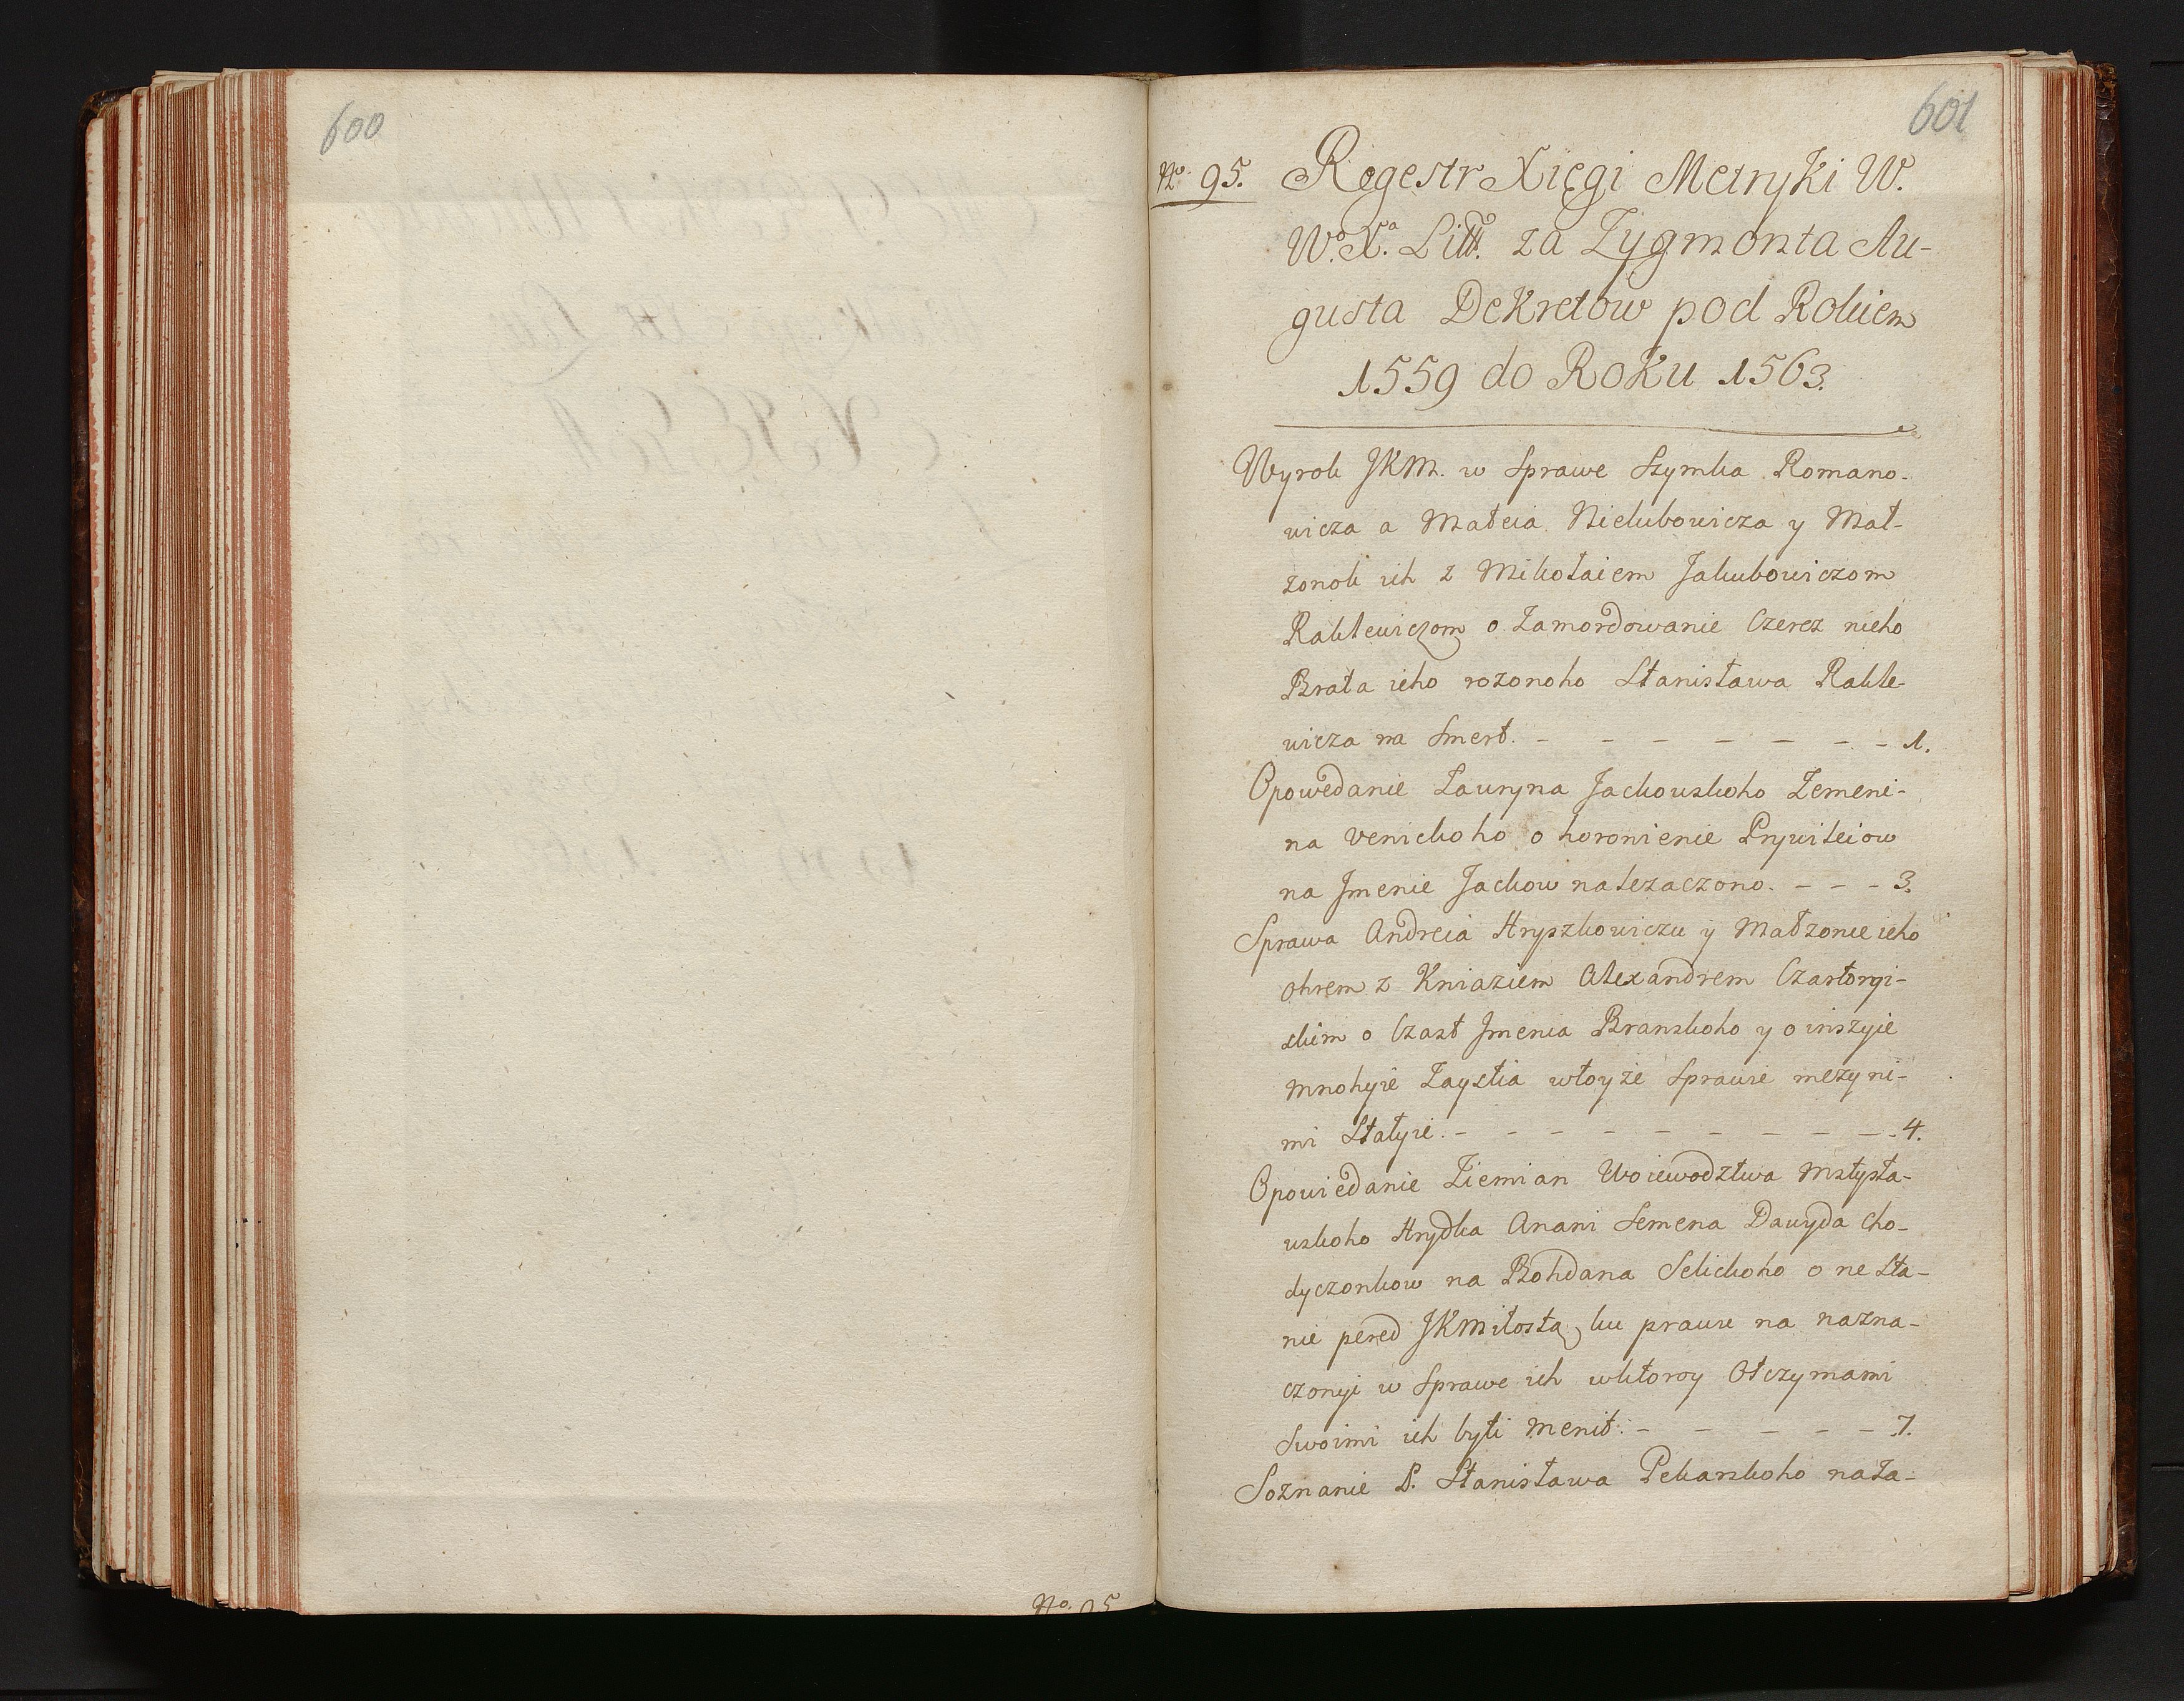 600
No. 95
601
No. 95. Regestr Xięgi Metryki W.
W.o X.a Litt. za Zygmonta Au-
gusta Dekretow pod Rokiem
1559 do Roku 1563.
Wyrok JKM. w Sprawe Szymka Romano-
wicza a Mateia Nielubowicza y Mał-
zonok ich z Mikołaiem Jakubowiczom
Raklewiczom o Zamordowanie Czerez nieho
Brata ieho rozonoho Stanisława Rakle-
wicza na Smert. - - - - - - - 1.
Opowedanie Ławryna Jackowskoho Zemeni-
na Venickoho o horonienie Prywileiow
na Jmenie Jackow nalezaczono. - - - 3.
Sprawa Andreia Hryszkowiczu y Małzonce ieho
Ohrem z Kniaziem Alexandrem Czartoryi-
skim o Czast Jmenia Branskoho y o inszyie
mnohyie Zaystia wtoyże Sprawie mezy ni-
mi Stałyie. - - - - - - - - - 4.
Opowiedanie Ziemian Woiewodztwa Mstysła-
wskoho Hrydka Anani Semena Dawyda Cho-
dyczonkow na Bohdana Selickoho o ne Sta-
nie pered JKMiłostą ku prawu na nazna-
czonyi w Sprawe ich wktoroy Otczymami
Swoimi ich byti menit. - - - - - 7.
Soznanie P. Stanisława Pekarskoho na Za-